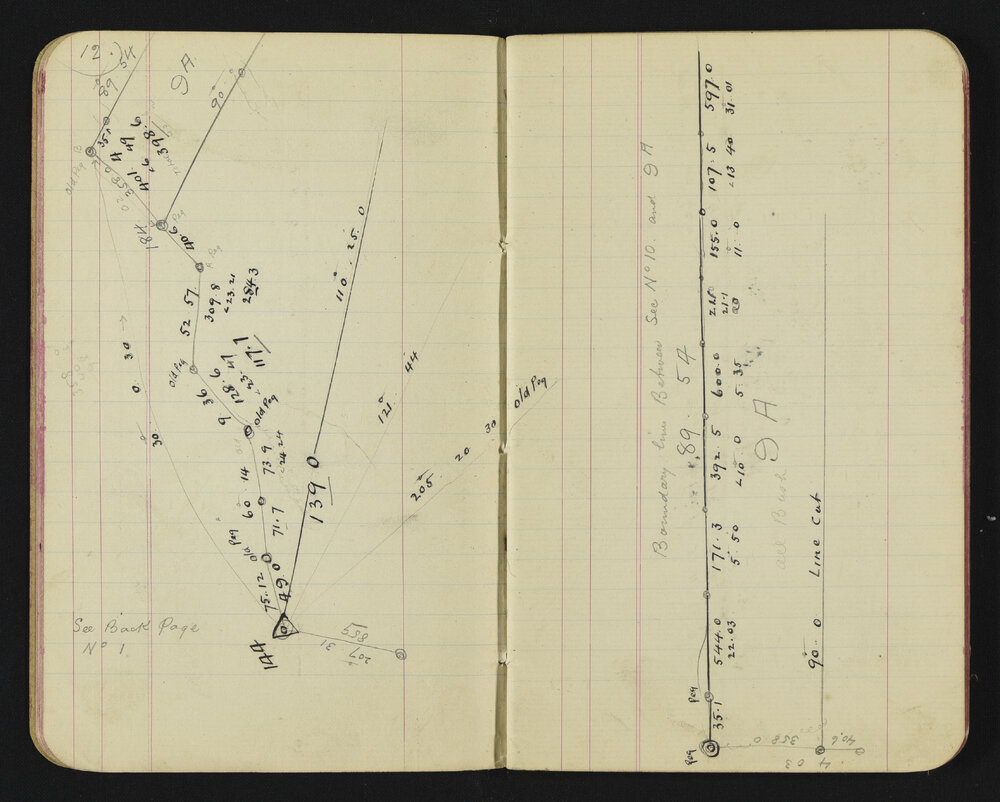 12.
9 A
89 54
35.1
old Peg
358.0
4 49
401.6
398.6
90°
184
40.6
Peg
Peg
52 57
309.8
<23.21
284.3
old Peg
9 36
128.6
117.1
old Peg
0 30
30
14
73 9
<24 24
60
71.7
old Peg
75.12
49.0
144
139 0
110° 25. 0
121° 44
205° 20 30
old Peg
207 31
855
See Back Page
No 1
Boundary lines Between Sec No 10. and 9 A
89. 54
all Bush 9 A
Peg
Peg
35.1
544.0
22.03
171.3
5. 50
392.5
<10. 0
600.0
5. 35
155.0
11. 0
107.5
<13 40
597.0
31. 01
90° 0 Line Cut
358.0
40.6
4 03